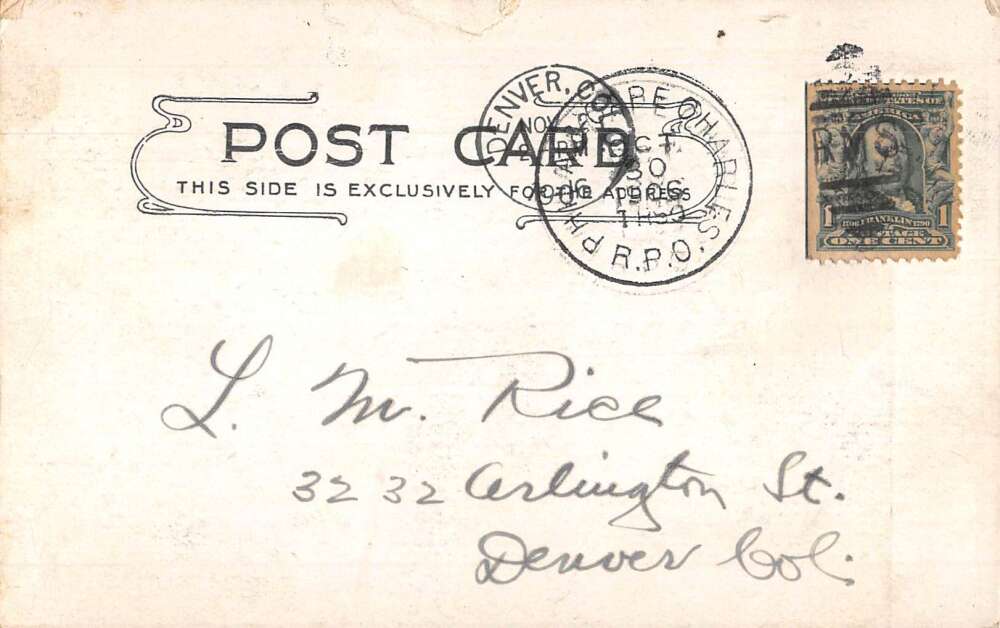 POST CARD
THIS SIDE IS EXCLUSIVELY FOR THE ADDRESS
DENVER, COL
NOV
1906
CAPE CHARLES
OCT
30
1906
R.P.O.
UNITED STATES OF
AMERICA
1706 FRANKLIN 1790
1 POSTAGE 1
ONE CENT
L. M. Rice
3232 Arlington St.
Denver Col.